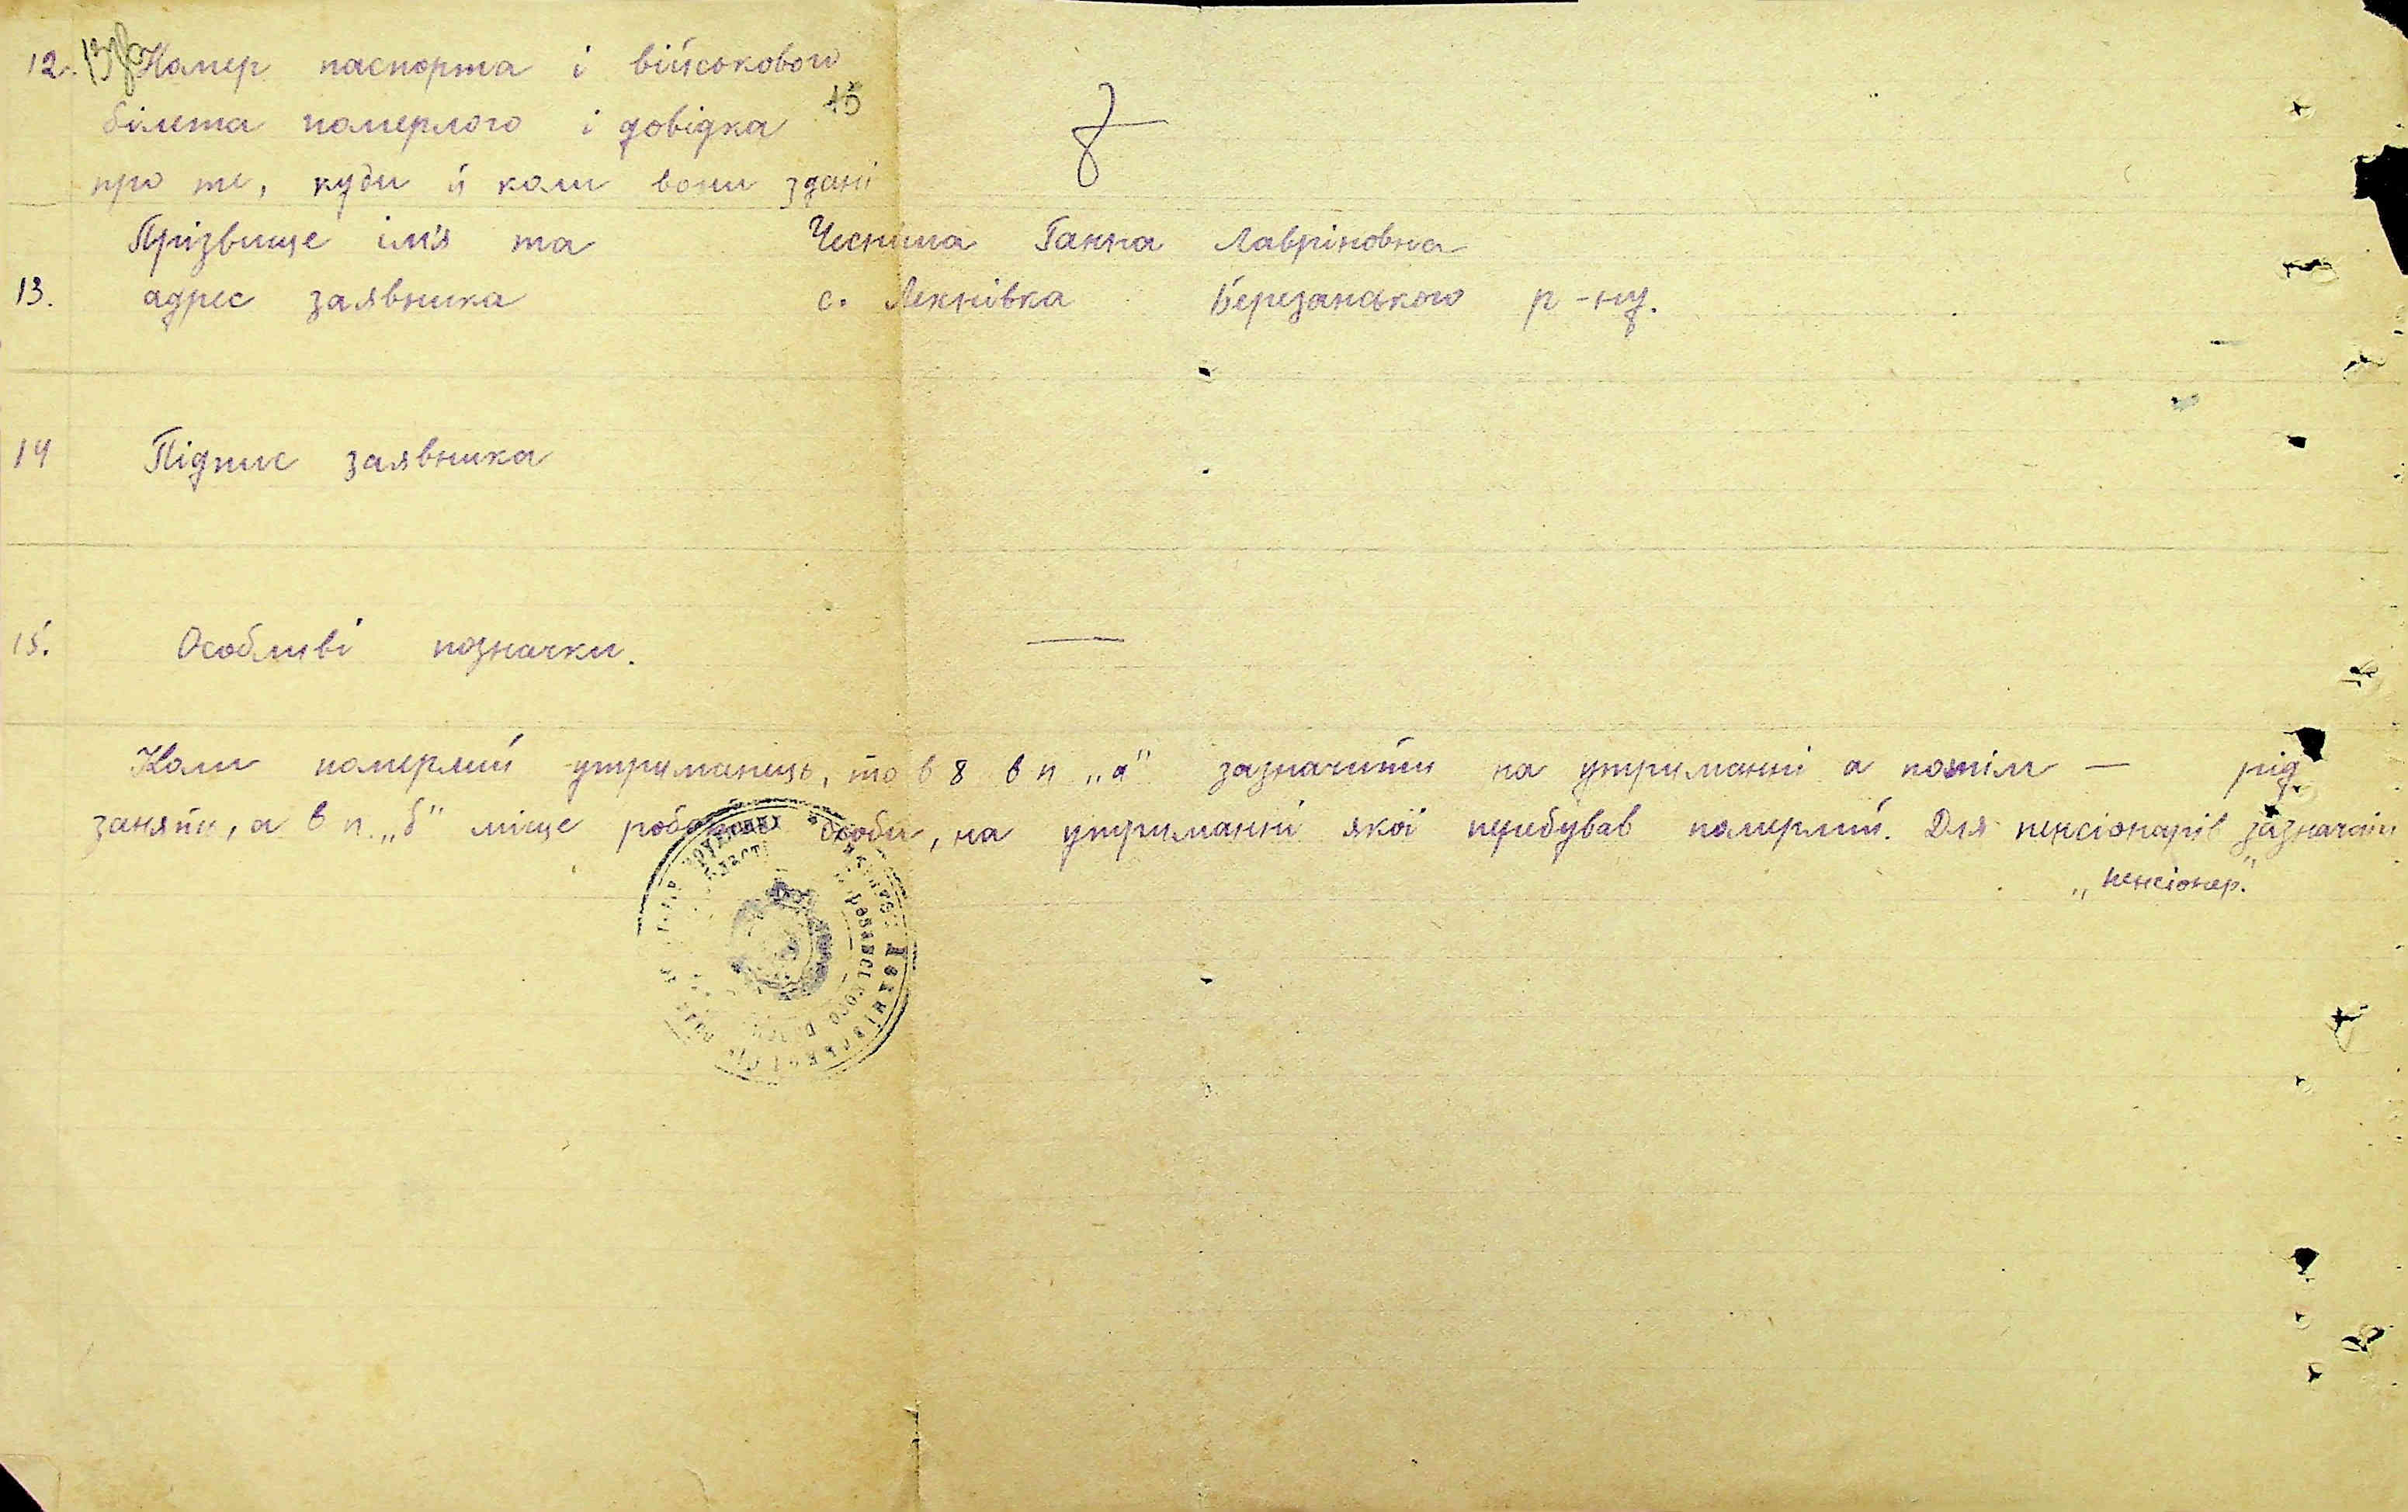 12. Номер паспорта і військового
45
білета померлого і довідка
про те, куди й коли вони здані
Прізвище ім'я та Ганна Лавріновна
13. адрес заявника с. Лехнівка Березанського р-ну.
14 Підпис заявника
15. Особливі позначки. —
Коли померлий утриманець, то в 8 в п „а" зазначити на утриманні а потім — рід
заняття, а в п. „б" місце роботи особи, на утриманні якої перебував померлий. Для пенсіонарів зазначати
„пенсіонер."